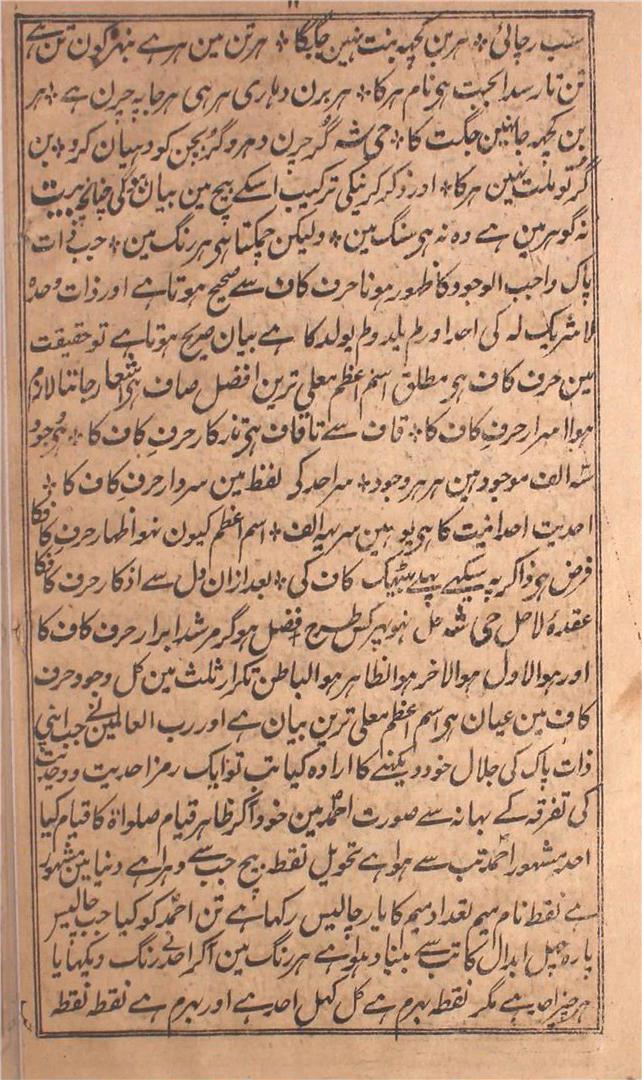 سب رچائی * ہر بن کچھہ بنت نہین جگ کا * ہر تن مین ہر ہے نہر کون تن ہے
تن تار سدا بجت ہی نام ہر کا * ہر برن دہاری ہر ہی ہر جا پہ چرن ہے * ہر
بن کچھہ جانہین جگت کا * جی شہ گر چرن دہرو گر بچن کو دہیان کرو * بن
گر تو ملت نہین ہر کا * اور ذکر کرنیکی ترکیب اسکے بیچ مین بیان ہوگی چنانچہ بیت
نہ گوہر مین ہے وہ نہ ہی سنگ مین * ولیکن چمکتا ہی ہر رنگ مین * جب ذات
پاک واجب الوجود کا ظہور ہونا حرف کاف سے صحیح ہوتا ہے اور ذات وحدہ
لا شریک لہ کی احد اور لم یلد ولم یولد کا ہے بیان صریح ہوتا ہے تو حقیقت
مین حرف کاف ہی مطلق اسم اعظم معلی ترین افضل صاف ہی اشعار جاننا لازم
ہوا اسرار حرف کاف کا * قاف سے تا قاف ہی تذکار حرف کاف کا * ہی جو
شہ الف موجود مین ہر ہر وجود * ہر احد کی لفظ مین سروار حرف کاف کا *
احدیت احدانیت کا ہی یو ہین سر یہہ الف * اسم اعظم کیون نہو اظہار حرف کاف کا
فرض ہی ذاکر پہ سیکھے پہلے بیٹھک کاف کی * بعد ازان دل سے اذکار حرف کاف کا
عقدۂ لا حل جی شہ حل نہو پہر کس طرح * افضل ہو گر مرشد ابرار حرف کاف کا
اور ہوالاول ہوالاخر ہوالظاہر ہوالباطن تکرار ثلث مین کل وجود حرف
کاف مین عیان ہی اسم اعظم معلی ترین بیان ہے اور رب العالمین نے جب اپنی
ذات پاک کی جلال خود دیکھنے کا ارادہ کیا تب تو ایک رمز احدیت و وحدیت
کی تفرقہ کے بہانہ سے صورت احمد مین خود آ کر ظاہر قیام صلواۃ کا قیام کیا
احد مشہور احمد تب سے ہوا ہے تحویل نقط بیچ جب سے دہرا ہے دنیا مین مشہور
ہے نقط نام میم تعداد میم کا یار چالیس رکہا ہے تن احمد کو کیا جب چالیس
پارہ چہل ابدال کا تب سے بنیاد ہوا ہے ہر رنگ مین آکر احد نے رنگ دیکہایا
ہر چیز احد ہے مگر نقطہ بہرم ہے کل کہل احد ہے اور بہرم ہے نقطہ نقطہ